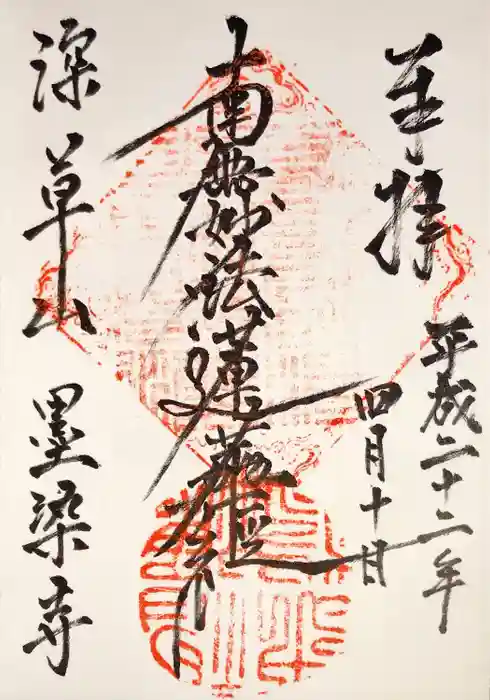 奉拝
平成二十二年
四月十日
南無妙法蓮華経
深草山
墨染寺